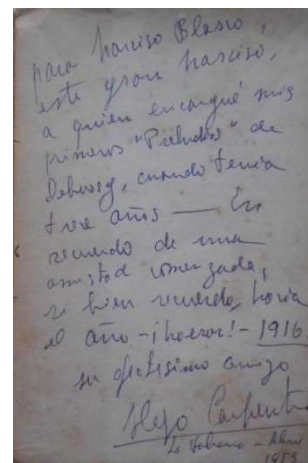 para Narciso Blasco,
este gran Narciso,
a quien encargué mis
primeros "Preludios" de
Debussy, cuando tenía
trece años — En
recuerdo de una
amistad comenzada,
si bien recuerdo, hacia
el año - ¡horror! - 1916
su afectísimo amigo
Alejo Carpentier
La Habana - 
1953